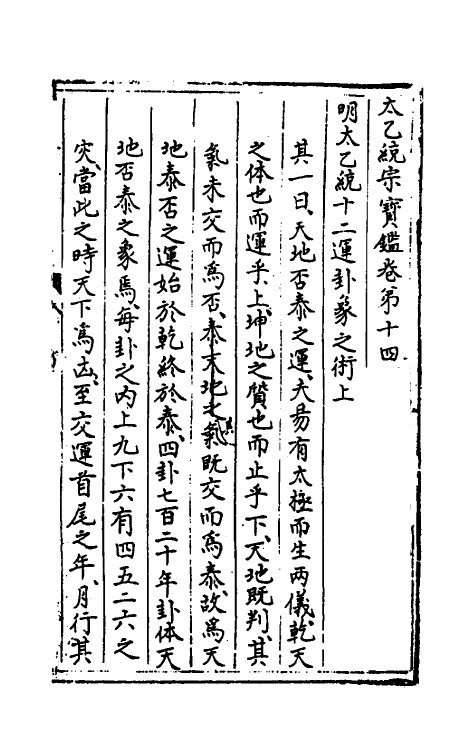 太乙統宗寶鑑卷第十四
明太乙統十二運卦象之術上
其一曰天地否泰之運夫易有太極而生兩儀乾天
之体也而運乎上坤地之質也而止乎下天地既判其
氣未交而爲否泰天地之氣既交而爲泰故爲天
地泰否之運始於乾終於泰四卦七百二十年卦体天
地否泰之象焉每卦之内上九下六有四五二六之
災當此之時天下爲凶至交運首尾之年月行其